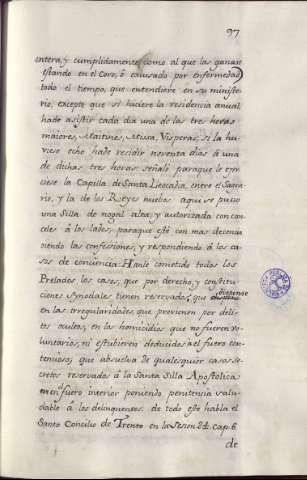 97
entera, y cumplidamente, como al que las ganan
estando en el Coro, ó causado por enfermedad
todo el tiempo, que entendiere en su ministe-
rio, excepto que si hiciere la residencia anual
hade asistir cada dia una de las tres horas
maiores, Maitines, Missa, Visperas; si la hu-
viese echo hade residir noventa dias á una
de dichas tres horas señalé paraque le ejer
ciese la Capilla de Santa Leocadia, entre el Sagra-
rio, y la de los Reyes nuebos aqui se puso
una Silla de nogal alta, y autorizada con can-
celes á los lados, paraque esté con mas decencia
oiendo las confesiones, y respondiendo á los ca-
sos de conciencia Hanle cometido todos los
Prelados los casos, que por derecho, y constitu-
ciones Synodales tienen reservados, que dispense
en las irregularidades, que provienen por deli-
tos ocultos, en los homicidios que no fueren vo-
luntarios, ni estubieren deducidos a el fuero con-
tencioso; que absuelva de qualesquier casos se-
cretos reservados á la Santa Silla Apostolica
en el fuero interior poniendo penitencia salu-
dable á los delinquentes. de todo esto habla el
Santo Concilio de Trento en la Sesion 24. cap. 6.
de